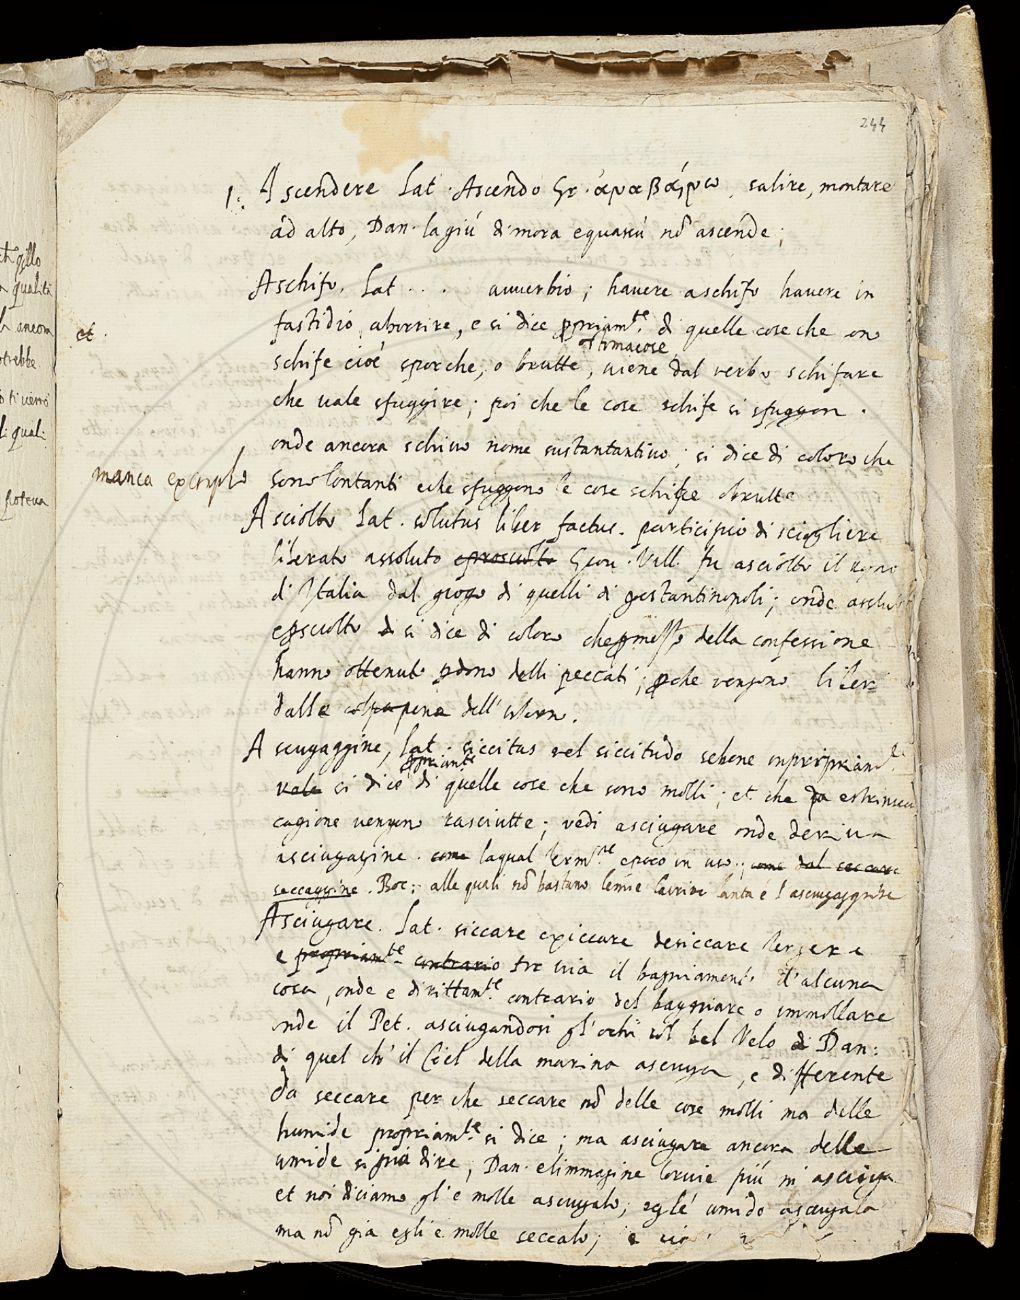 244
1. Ascendere Lat. Ascendo Gr. ἀναβαίνω, salire, montare
ad alto, Dan. lagiú dimora equasú nõ ascende;
Aschifo. Lat . . . auuerbio; hauere aschifo hauere in
fastidio, aborrire, e si dice ppriam.te di quelle cose che ono
et.
ostimacose
schife cioé sporche, o brutte, uiene dal verbo schifare
che uale sfuggire; poi che le cose schife si sfuggon.
onde ancora schiuo nome sustantantiuo; si dice di coloro che
manca exemplo
sono lontanti eche sfuggono le cose schifze obrutte
Asciolto Lat. solutus liber factus. participio di sciogliere
liberato assoluto eprosciolto Giou. Vill. fu asciolto il regno
d'Italia dal giogo di quelli di gostantinopoli; onde
epsciolto di si dice di coloro che della confessione
hanno ottenuto pdono delli peccati; pche vengono liber
dalla colpa pena dell'
Asciugaggine, Lat. siccitas vel siccitudo sebene
ppriamte
vale si dico di quelle cose che sono molli; et che da estrinseca
cagione vengono rasciutte; vedi asciugare onde deriua
asciugagine. come laqual term.ne epoco in uso; come dal seccare
seccaggine. Boc: alle quali nõ bastano
Asciugare. Lat. siccare exiccare desiccare tergere
e propriam.te contrario tr uia il bagniamento d'alcuna
cosa, onde e dirittam.te contrario del bagniare o immollare
onde il Pet. asciugandosi gl'ochi col bel Velo di Dan:
di quel ch'il Ciel della marina asciuga, e differente
da seccare perche seccare nõ delle cose molli ma delle
humide propriam.te si dice; ma asciugare ancora delle
umide si può dire, Dan. elimmagine loruie piú m'asciuga
et noi diciamo gl'e molle asciugalo; eglé umido asciugalo
ma nõ gia egli e molle seccalo;